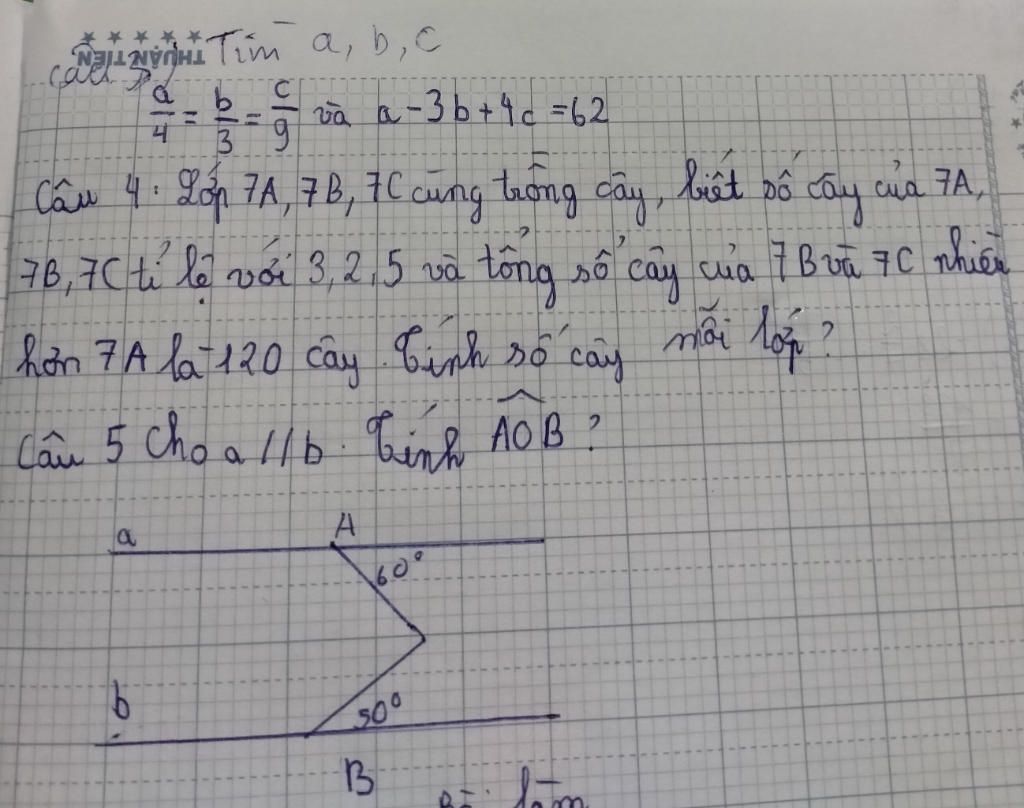 THUẬN TIẾN
Câu 3) Tìm a, b, c
a/4 = b/3 = c/9 và a - 3b + 4c = 62
Câu 4: Lớp 7A, 7B, 7C cùng trồng cây, biết số cây của 7A,
7B, 7C tỉ lệ với 3, 2, 5 và tổng số cây của 7B và 7C nhiều
hơn 7A là 120 cây. Tính số cây mỗi lớp?
Câu 5 Cho a // b. Tính AOB?
a A
60°
b
50°
B
Bài làm